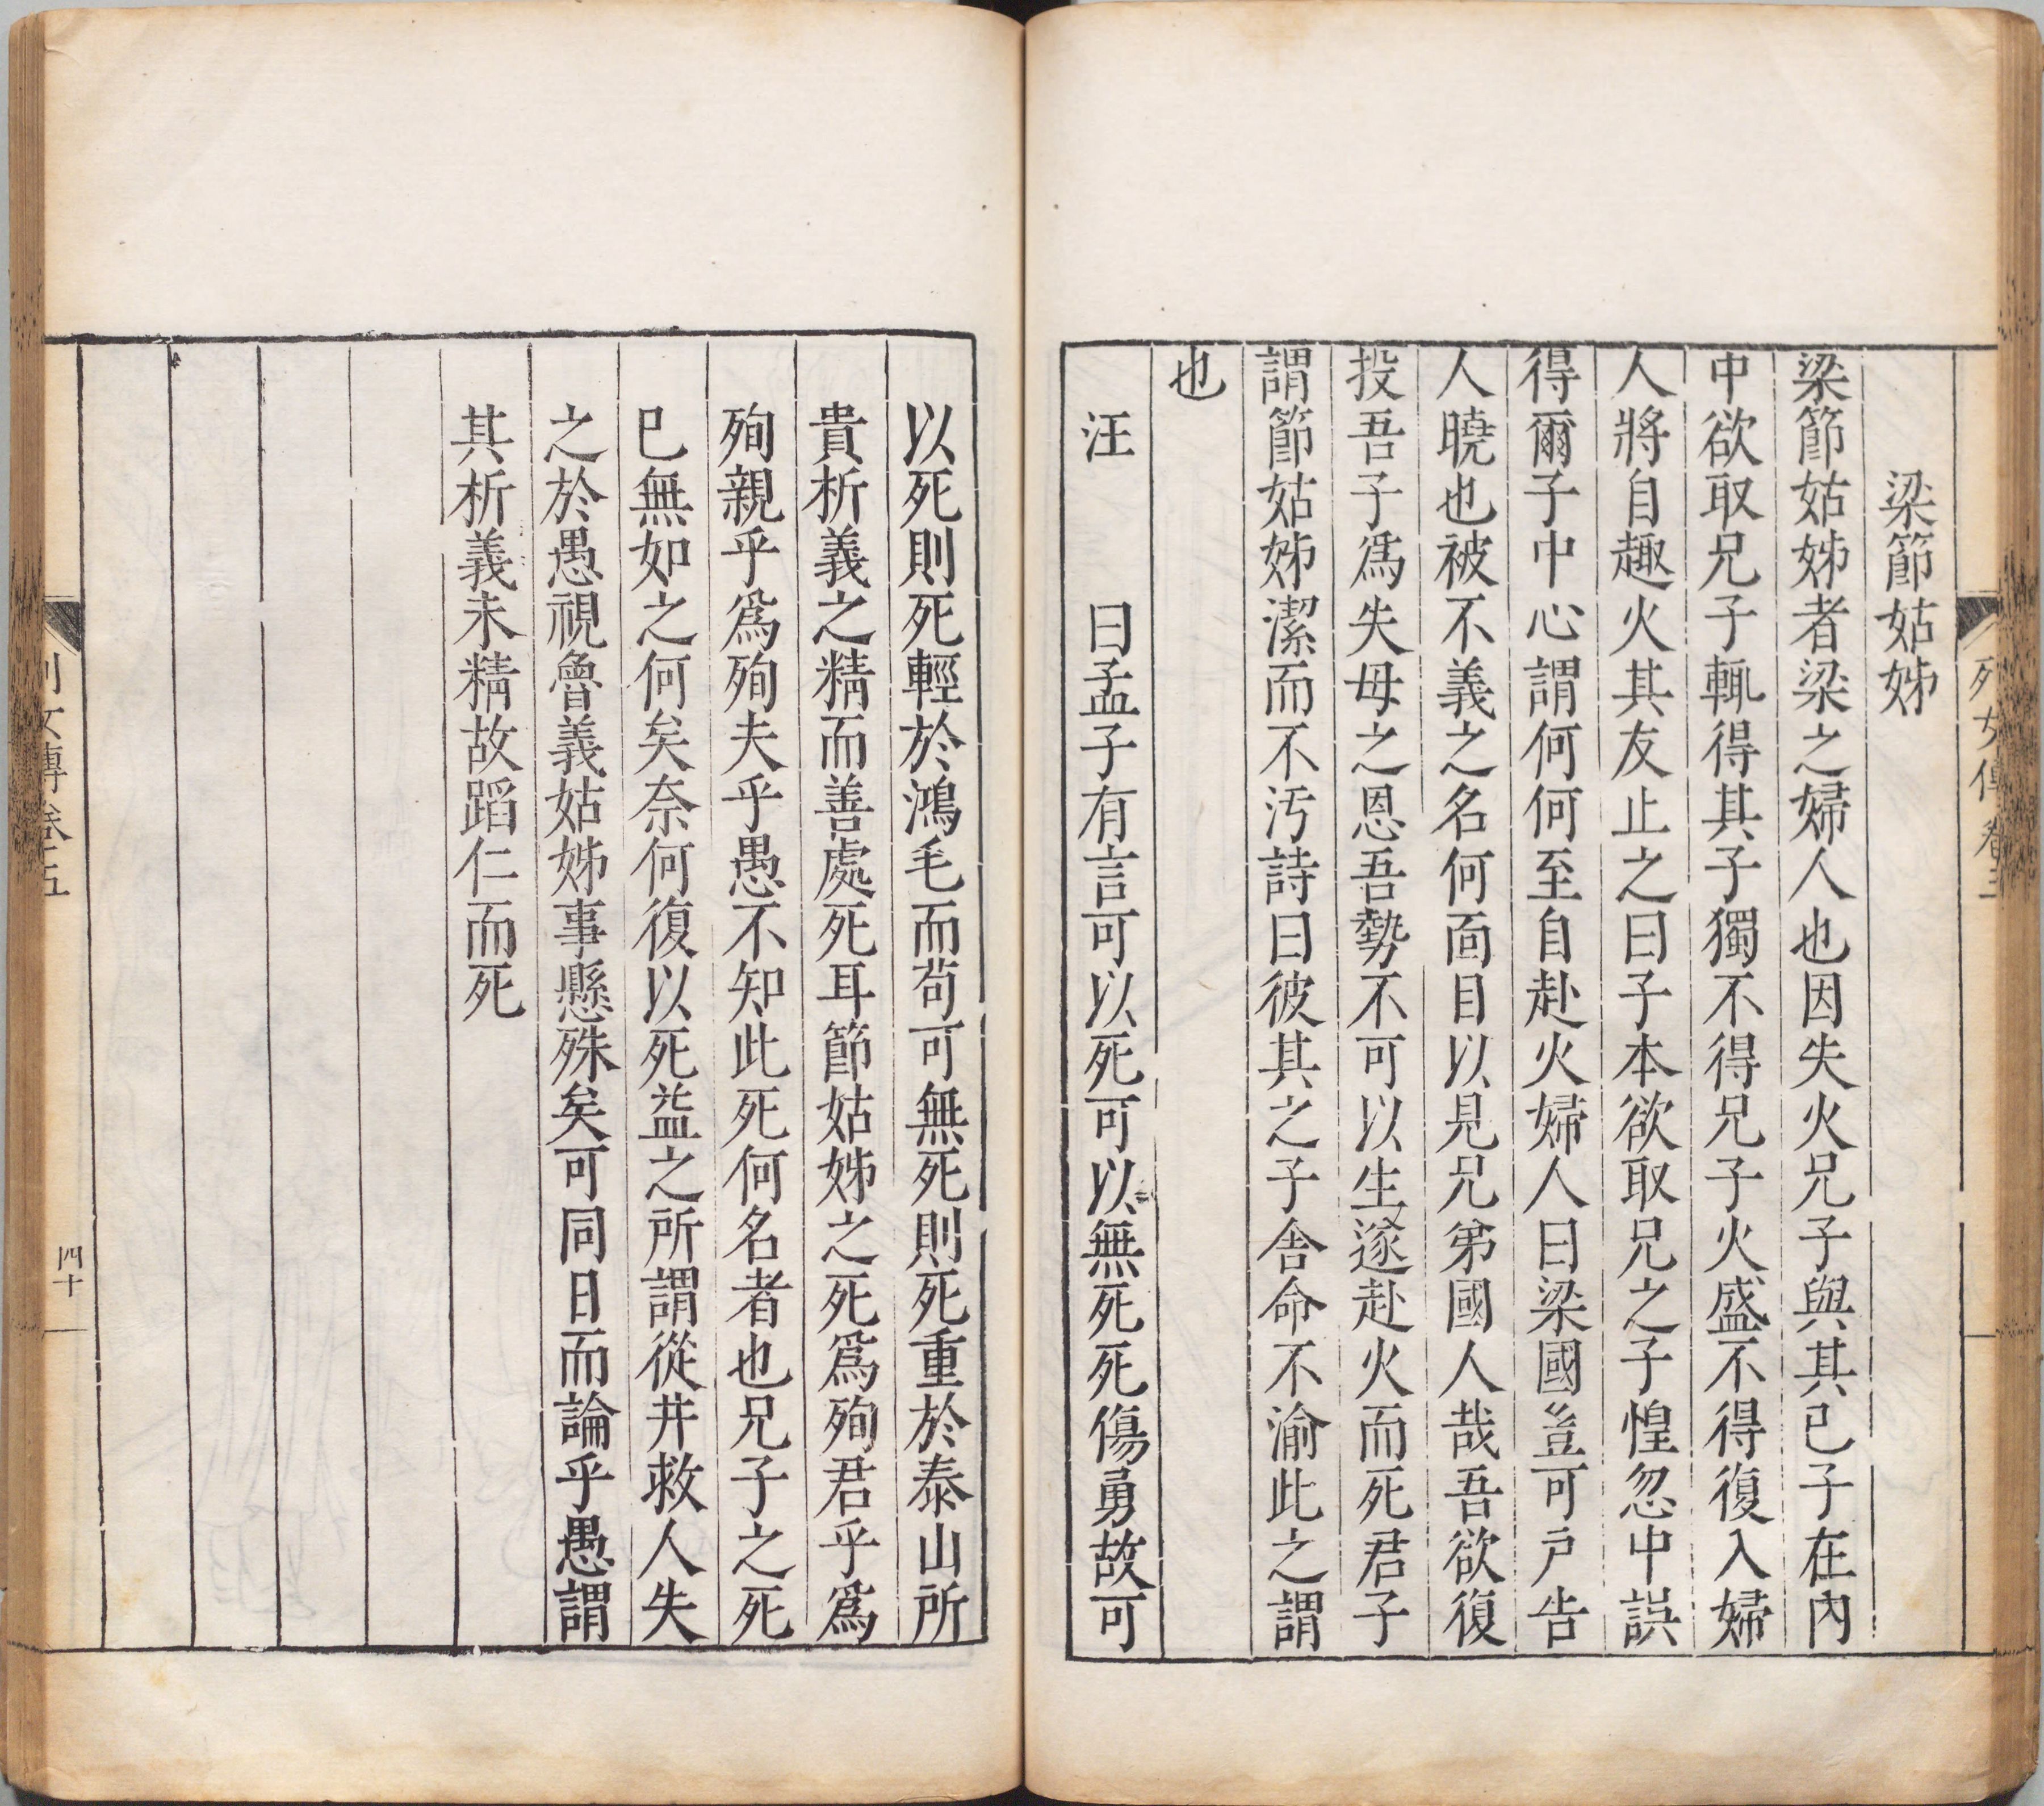 梁節姑姊
梁節姑姊者梁之婦人也因失火兄子與其己子在內
中欲取兄子輒得其子獨不得兄子火盛不得復入婦
人將自趣火其友止之曰子本欲取兄之子惶忽中誤
得爾子中心謂何何至自赴火婦人曰梁國豈可戶告
人曉也被不義之名何面目以見兄弟國人哉吾欲復
投吾子爲失母之恩吾勢不可以生遂赴火而死君子
謂節姑姊潔而不汚詩曰彼其之子舍命不渝此之謂
也
汪　曰孟子有言可以死可以無死死傷勇故可
以死則死輕於鴻毛而苟可無死則死重於泰山所
貴析義之精而善處死耳節姑姊之死爲殉君乎爲
殉親乎爲殉夫乎愚不知此死何名者也兄子之死
已無如之何矣奈何復以死益之所謂從井救人失
之於愚視魯義姑姊事懸殊矣可同日而論乎愚謂
其析義未精故蹈仁而死
列女傳卷五
四十